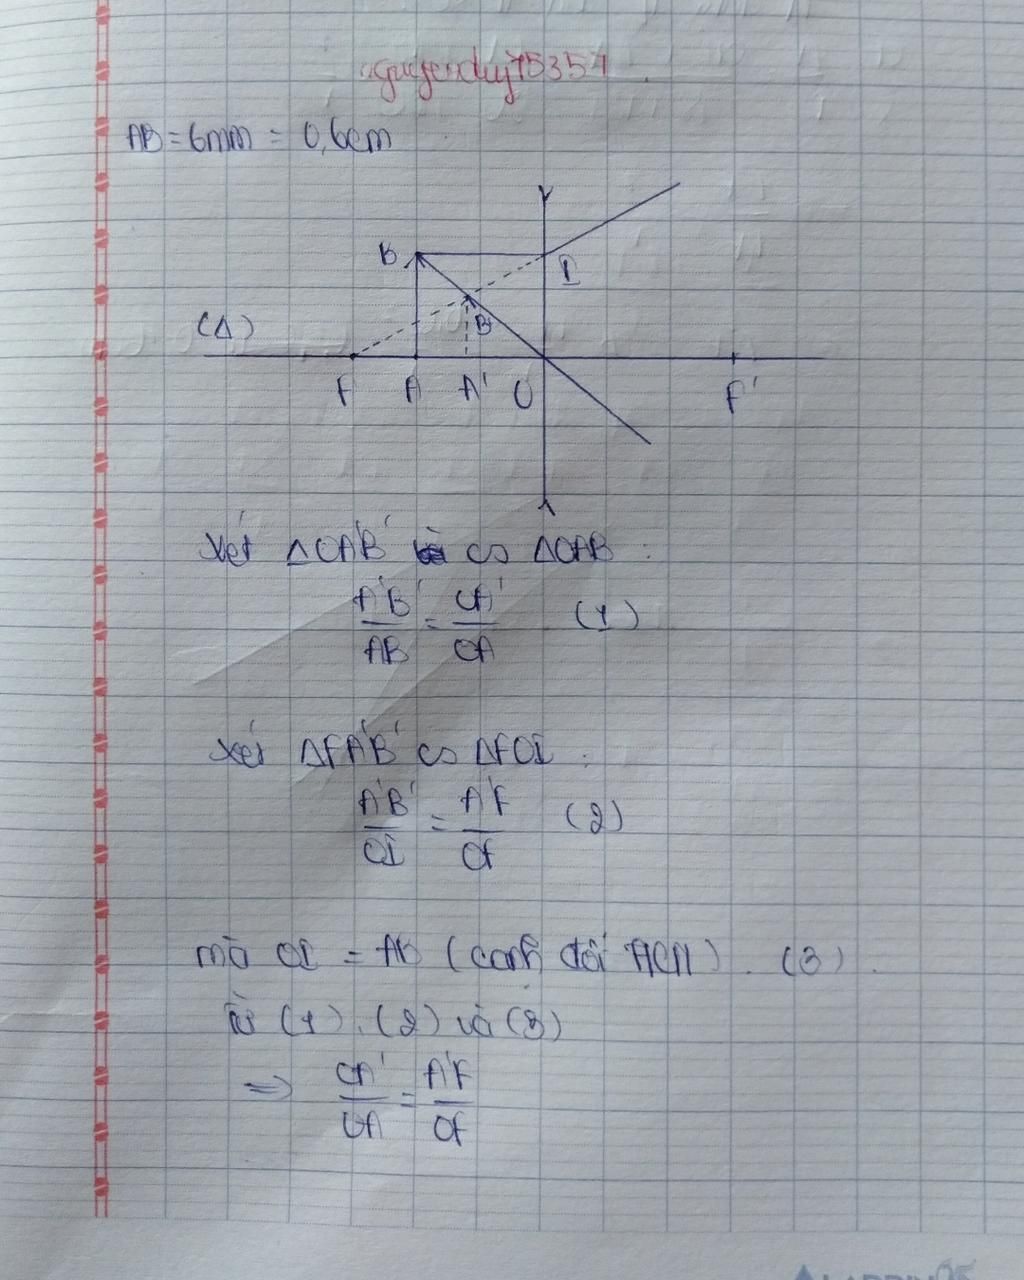 nguyenduy75357
AB = 6mm = 0,6cm
B
I
(Δ)
B'
F A A' O F'
Xét ΔOA'B' ∽ ΔOAB :
A'B'/AB = OA'/OA (1)
Xét ΔFA'B' ∽ ΔFOI :
A'B'/OI = A'F/OF (2)
mà OI = AB (cạnh đối HCN). (3).
Từ (1), (2) và (3)
=> OA'/OA = A'F/OF